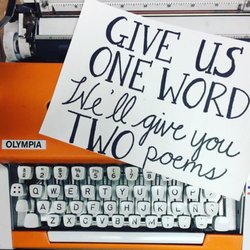 GIVE US
ONE WORD
We'll give you
TWO poems
OLYMPIA
Q W E R T Y U I O P
A S D F G H J K L Ñ
Z X C V B N M